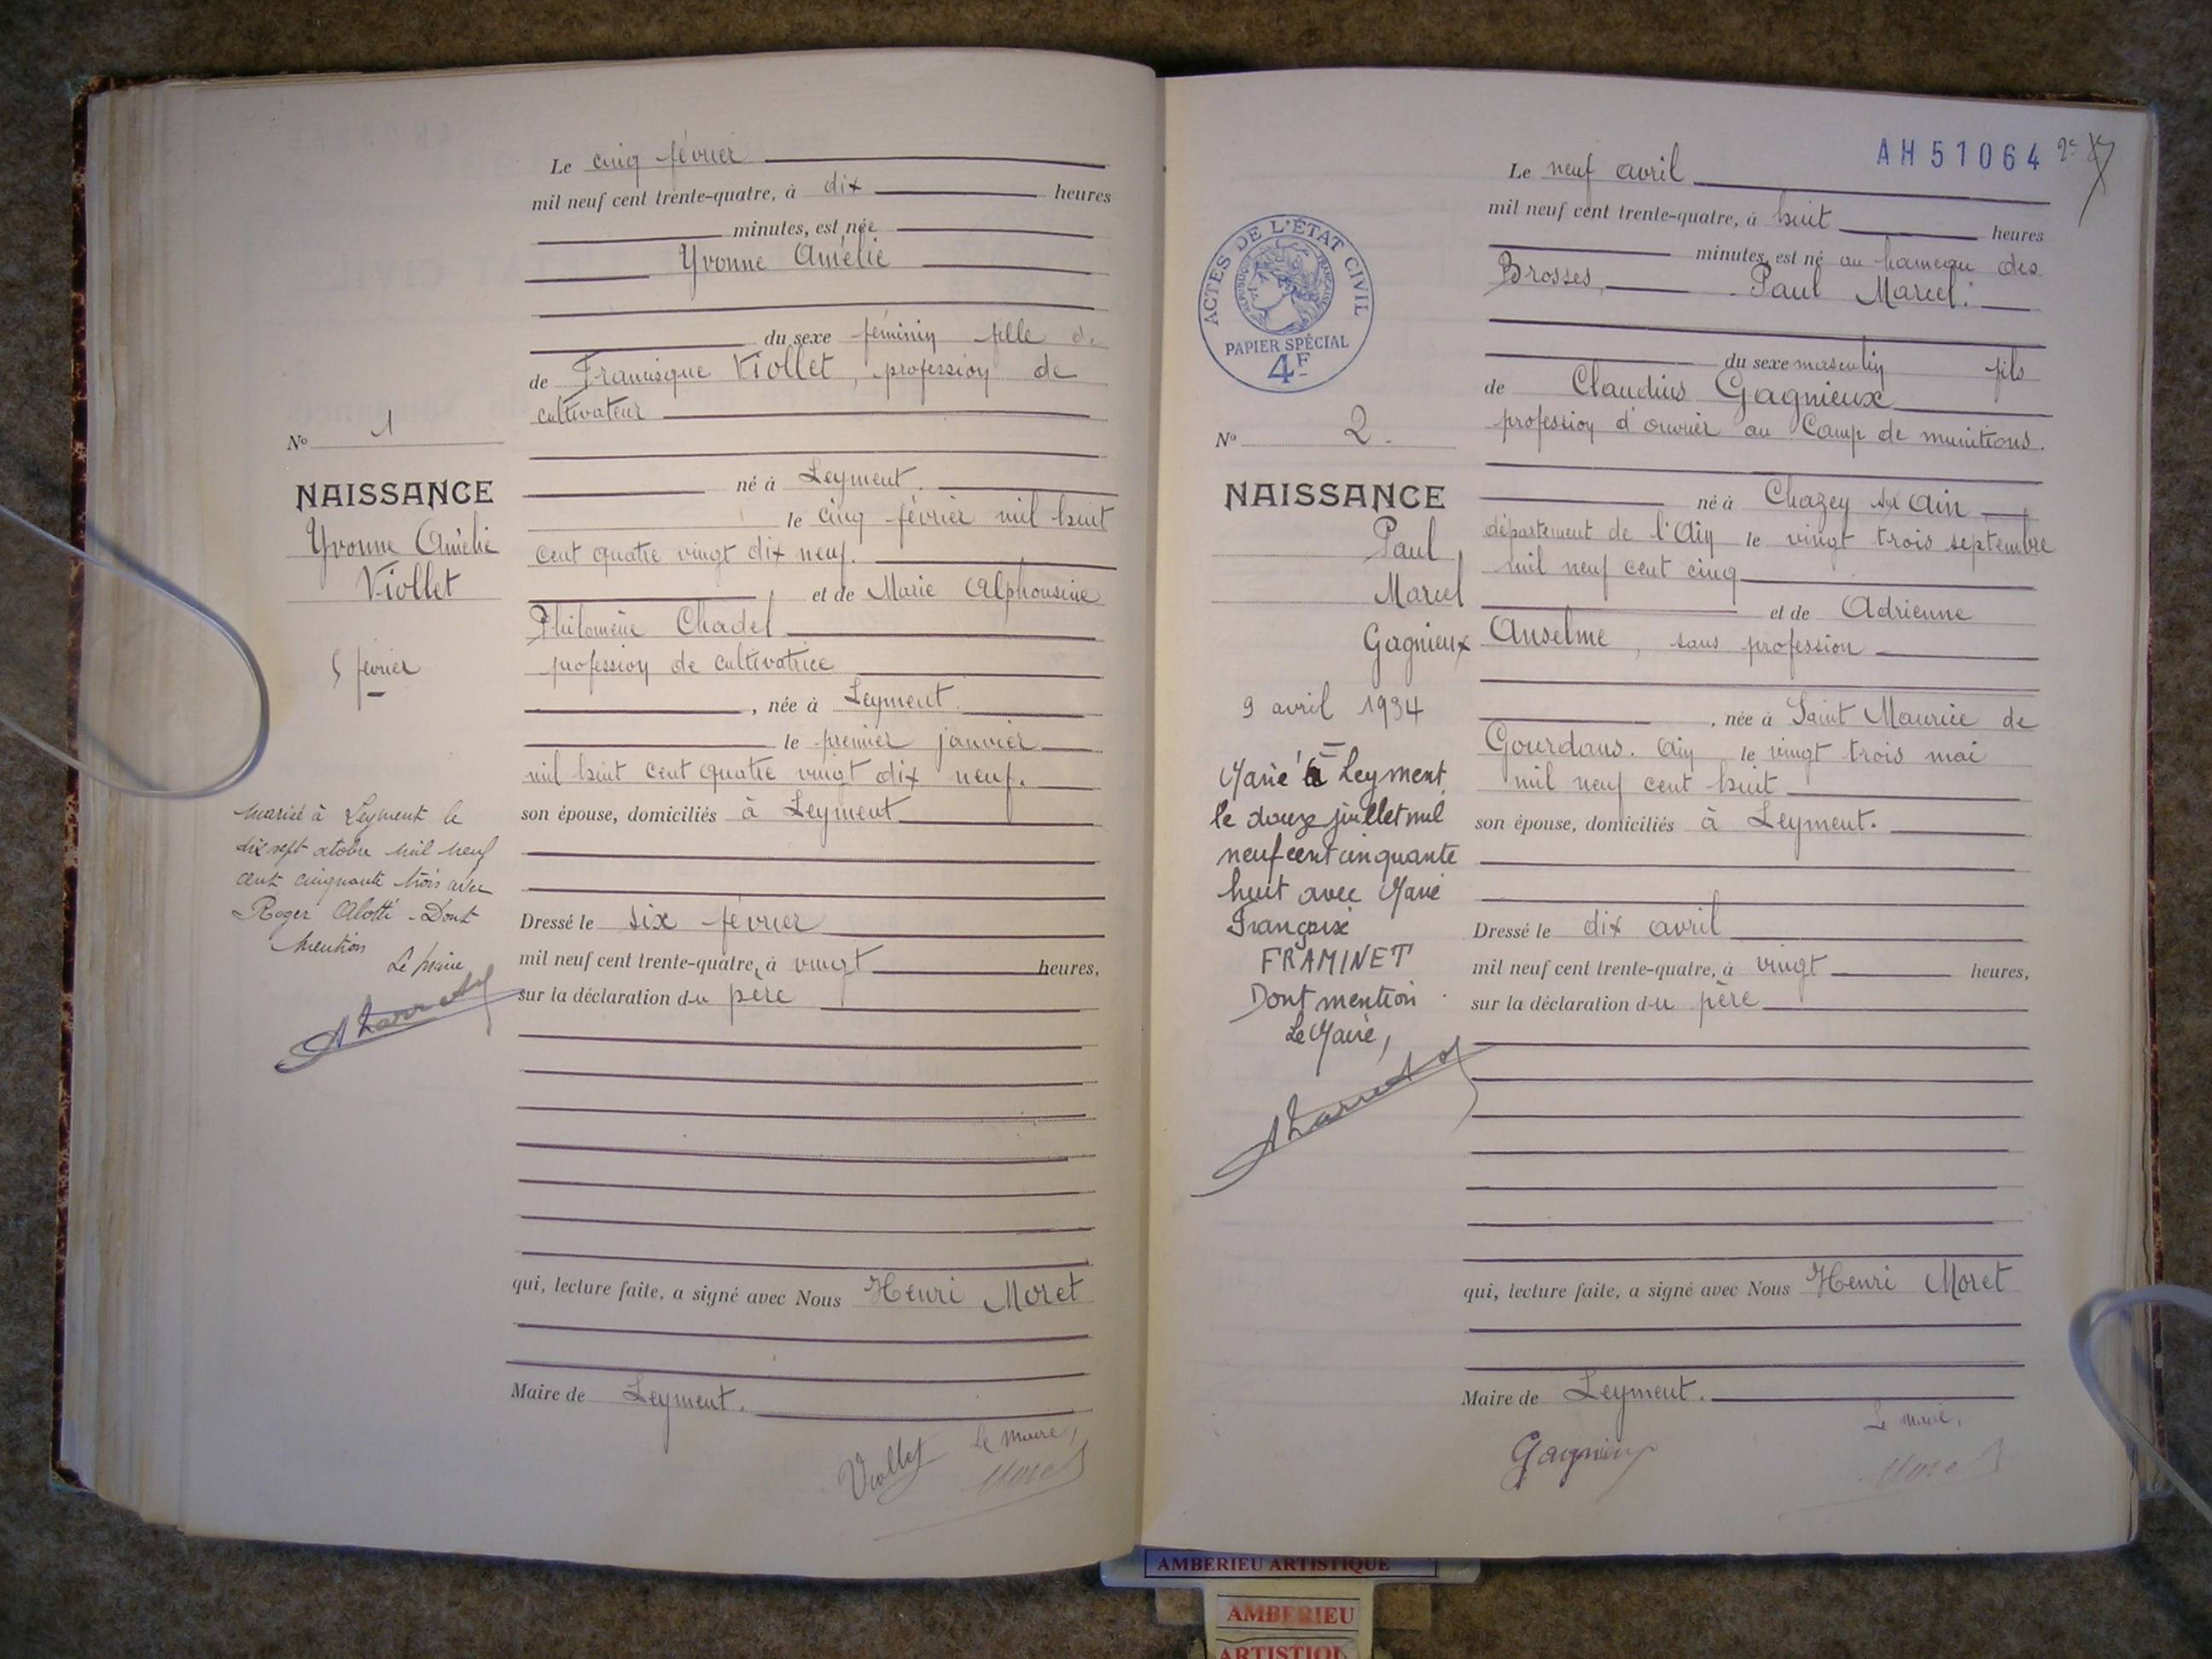 Le cinq février
mil neuf cent trente-quatre, à dix heures
minutes, est née
Yvonne Amélie
du sexe féminin fille de
de Francisque Viollet, profession de
cultivateur
né à Leyment.
le cinq février mil huit
cent quatre vingt dix neuf.
et de Marie Alphonsine
Philomène Chadel
profession de cultivatrice
, née à Leyment.
le premier janvier
mil huit cent quatre vingt dix neuf.
son épouse, domiciliés à Leyment
Dressé le six février
mil neuf cent trente-quatre, à vingt heures,
sur la déclaration du père
qui, lecture faite, a signé avec Nous Henri Moret
Maire de Leyment.
Viollet Le Maire,
Moret
No 1
NAISSANCE
Yvonne Amélie
Viollet
5 février
mariée à Leyment le
dix sept octobre mil neuf
cent cinquante trois avec
Roger Alotti - Dont
mention
Le Maire
AH 51064 2e
Le neuf avril
mil neuf cent trente-quatre, à huit heures
minutes, est né au hameau des
Brosses, Paul Marcel.
du sexe masculin fils
de Claudius Gagnieux
profession d'ouvrier au Camp de munitions.
né à Chazey sur Ain
département de l'Ain le vingt trois septembre
mil neuf cent cinq
et de Adrienne
Anselme, sans profession
, née à Saint Maurice de
Gourdans. Ain le vingt trois mai
mil neuf cent huit
son épouse, domiciliés à Leyment.
Dressé le dix avril
mil neuf cent trente-quatre, à vingt heures,
sur la déclaration du père
qui, lecture faite, a signé avec Nous Henri Moret
Maire de Leyment.
Le maire,
Gagnieux Moret
ACTES DE L'ÉTAT CIVIL
RÉPUBLIQUE FRANÇAISE
PAPIER SPÉCIAL
4F
No 2.
NAISSANCE
Paul
Marcel
Gagnieux
9 avril 1934
Marié à Leyment
le douze juillet mil
neuf cent cinquante
huit avec Marie
Françoise
FRAMINET
Dont mention
Le Maire,
AMBERIEU ARTISTIQUE
AMBERIEU
ARTISTIQUE